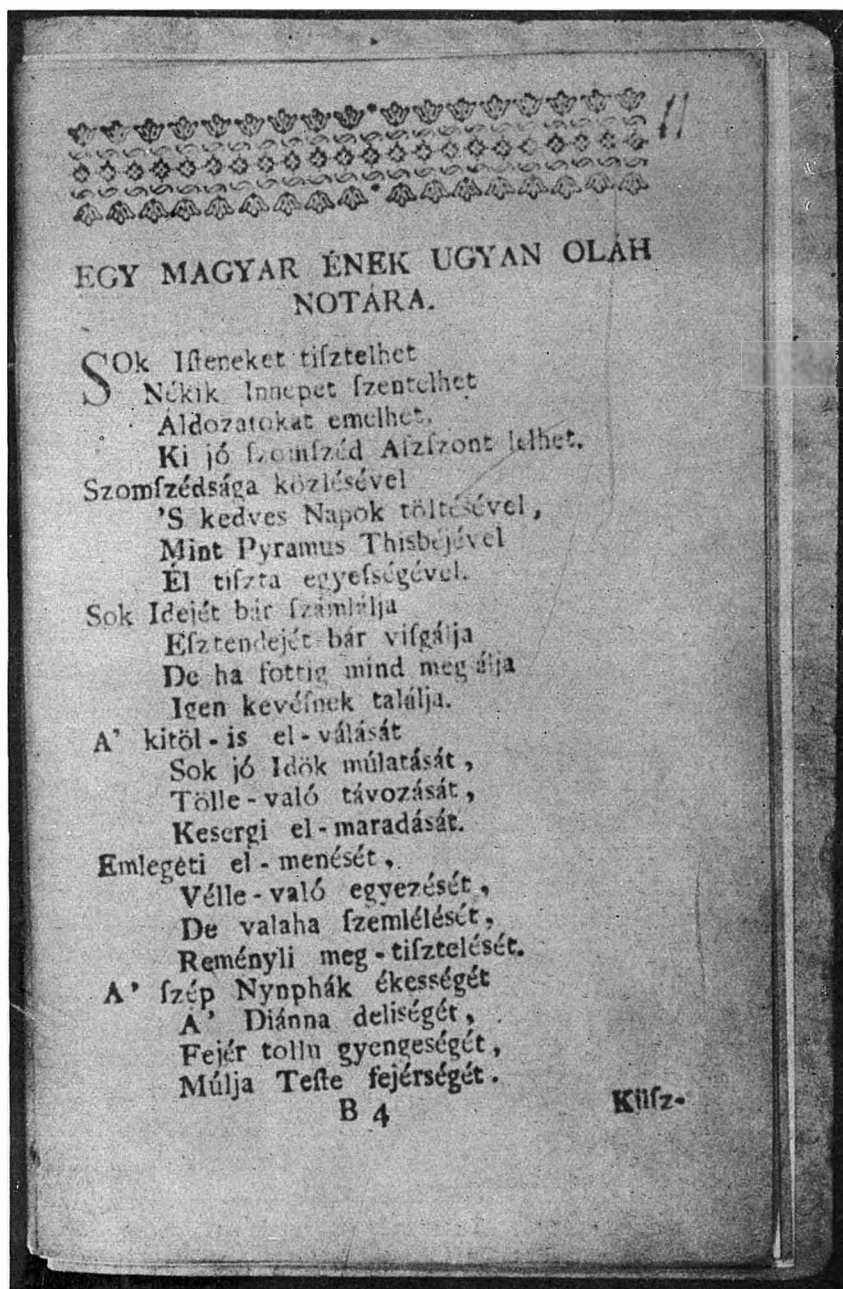 11
EGY MAGYAR ÉNEK UGYAN OLÁH
NOTÁRA.
SOk Iſteneket tiſztelhet
Nékik Innepet ſzentelhet
Áldozatokat emelhet,
Ki jó ſzomſzéd Aſzſzont lelhet.
Szomſzédsága közlésével
'S kedves Napok töltésével,
Mint Pyramus Thisbéjével
Él tiſzta egyeſségével.
Sok Idejét bár ſzámlálja
Eſztendejét bár viſgálja
De ha ſottig mind meg álja
Igen kevéſnek találja.
A' kitöl-is el-válását
Sok jó Idök múlatását,
Tölle-való távozását,
Kesergi el-maradását.
Emlegeti el-menését,
Vélle-való egyezését,
De valaha ſzemlélését,
Reményli meg-tiſztelését.
A' ſzép Nynphák ékességét
A' Diánna deliségét,
Fejér tollu gyengeségét,
Múlja Teſte fejérségét.
B 4
Külſz-